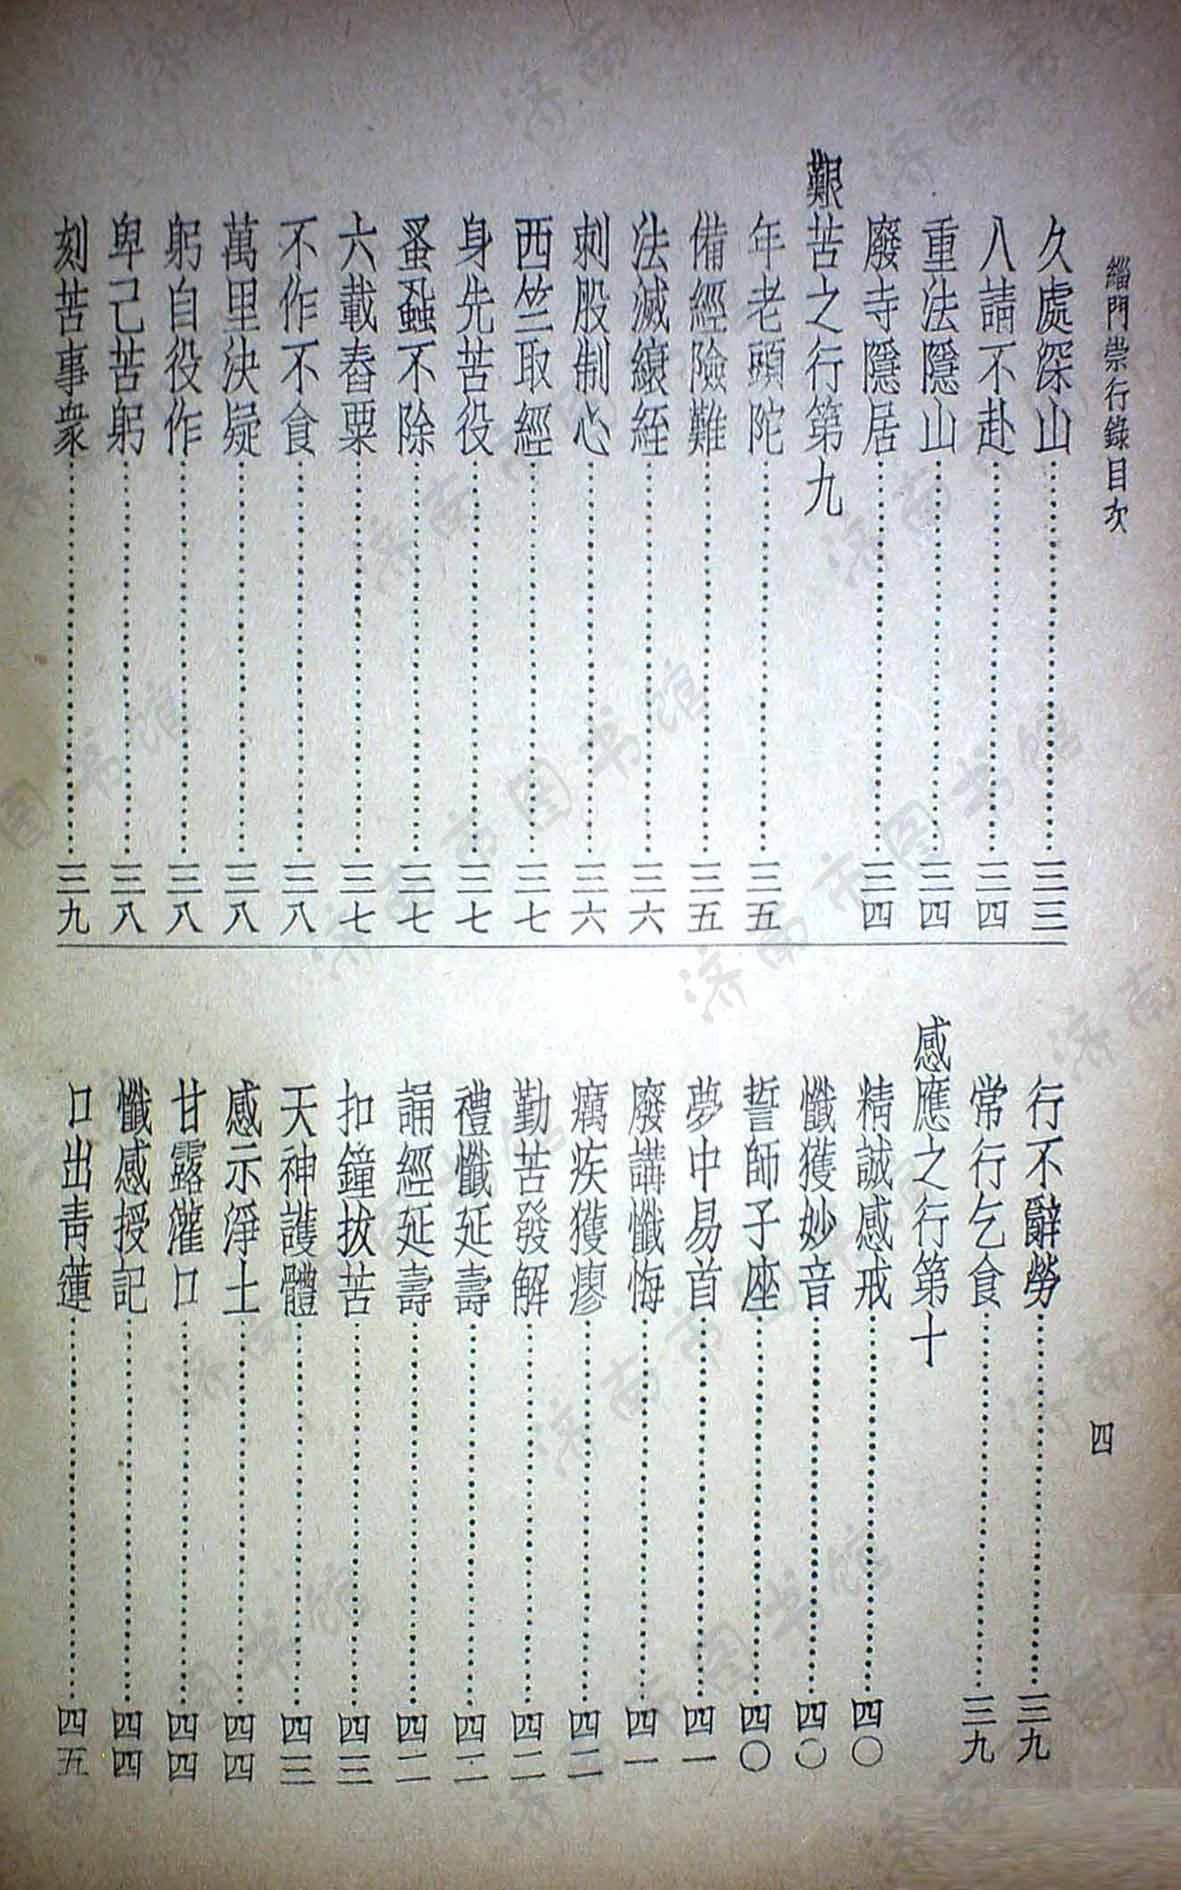 緇門崇行錄目次
久處深山……三三
八請不赴……三四
重法隱山……三四
廢寺隱居……三四
艱苦之行第九
年老頭陀……三五
備經險難……三五
法滅縗絰……三六
刺股制心……三六
西竺取經……三七
身先苦役……三七
蚤蝨不除……三七
六載舂粟……三七
不作不食……三八
萬里決疑……三八
躬自役作……三八
卑己苦躬……三八
刻苦事衆……三九
行不辭勞……三九
常行乞食……三九
感應之行第十
精誠感戒……四〇
懺獲妙音……四〇
誓師子座……四〇
夢中易首……四一
廢講懺悔……四一
癘疾獲瘳……四二
勤苦發解……四二
禮懺延壽……四二
誦經延壽……四二
扣鐘拔苦……四三
天神護體……四三
感示淨土……四四
甘露灌口……四四
懺感授記……四四
口出青蓮……四五
四
济南市图书馆